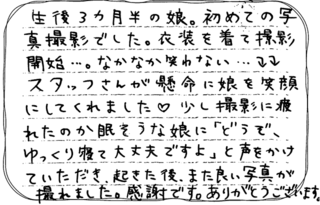 生後3カ月半の娘。初めての写
真撮影でした。衣装を着て撮影
開始…。なかなか笑わない…
スタッフさんが懸命に娘を笑顔
にしてくれました♡少し撮影に疲
れたのか眠そうな娘に「どうぞ、
ゆっくり寝て大丈夫ですよ」と声をかけ
ていただき、起きた後、また良い写真が
撮れました。感謝です。ありがとうございます。